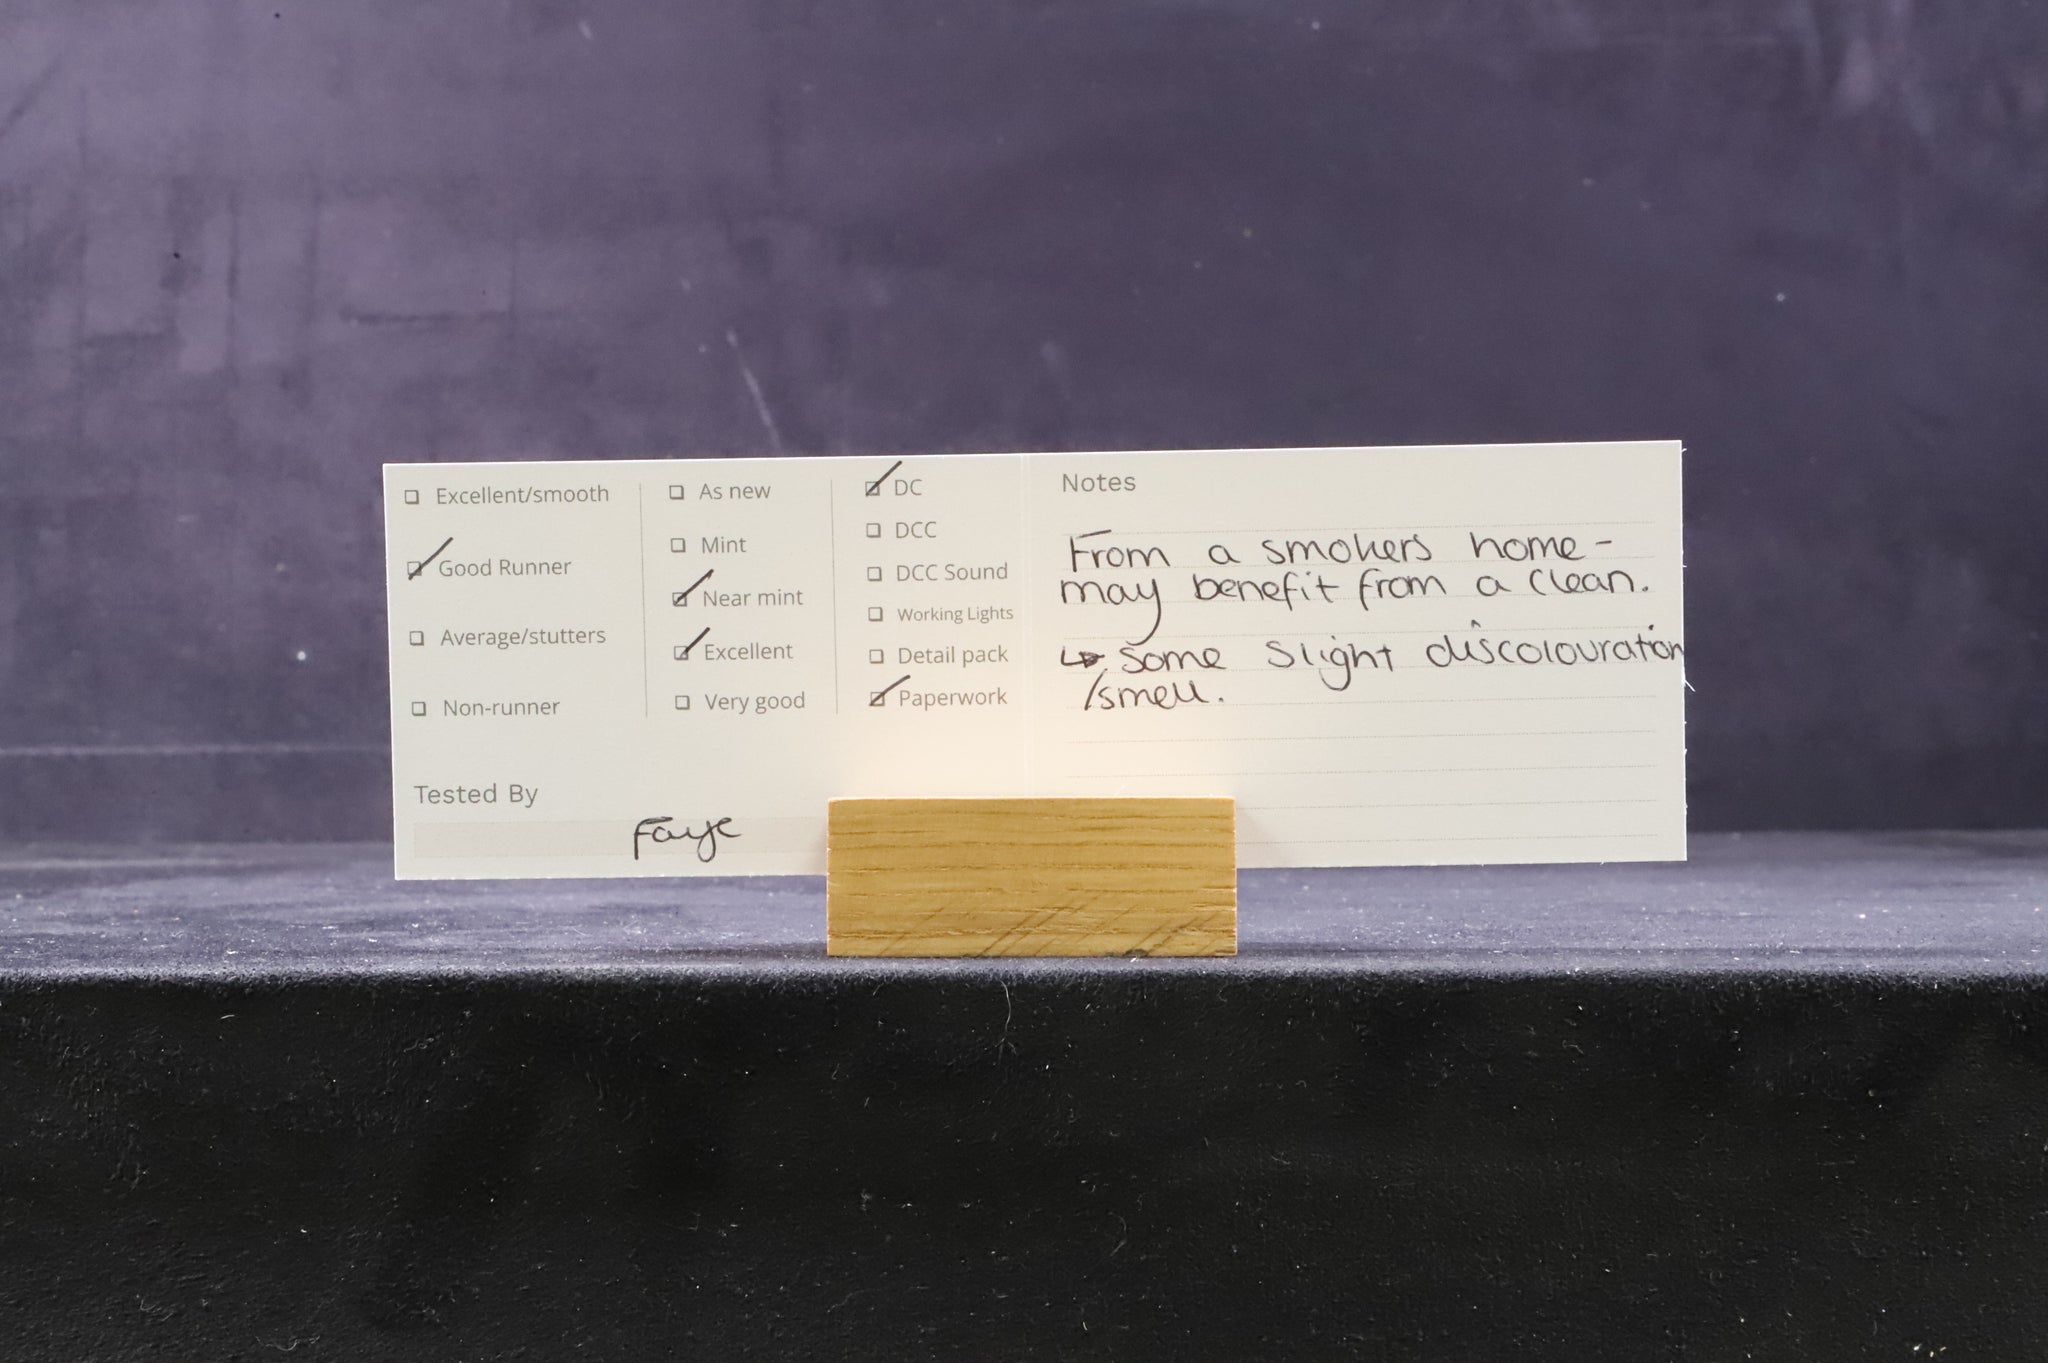 Excellent/smooth
Good Runner
Average/stutters
Non-runner
As new
Mint
Near mint
Excellent
Very good
DC
DCC
DCC Sound
Working Lights
Detail pack
Paperwork
Tested By
Faye
Notes
From a smokers home -
may benefit from a clean.
↳ Some slight discolouration
/smell.